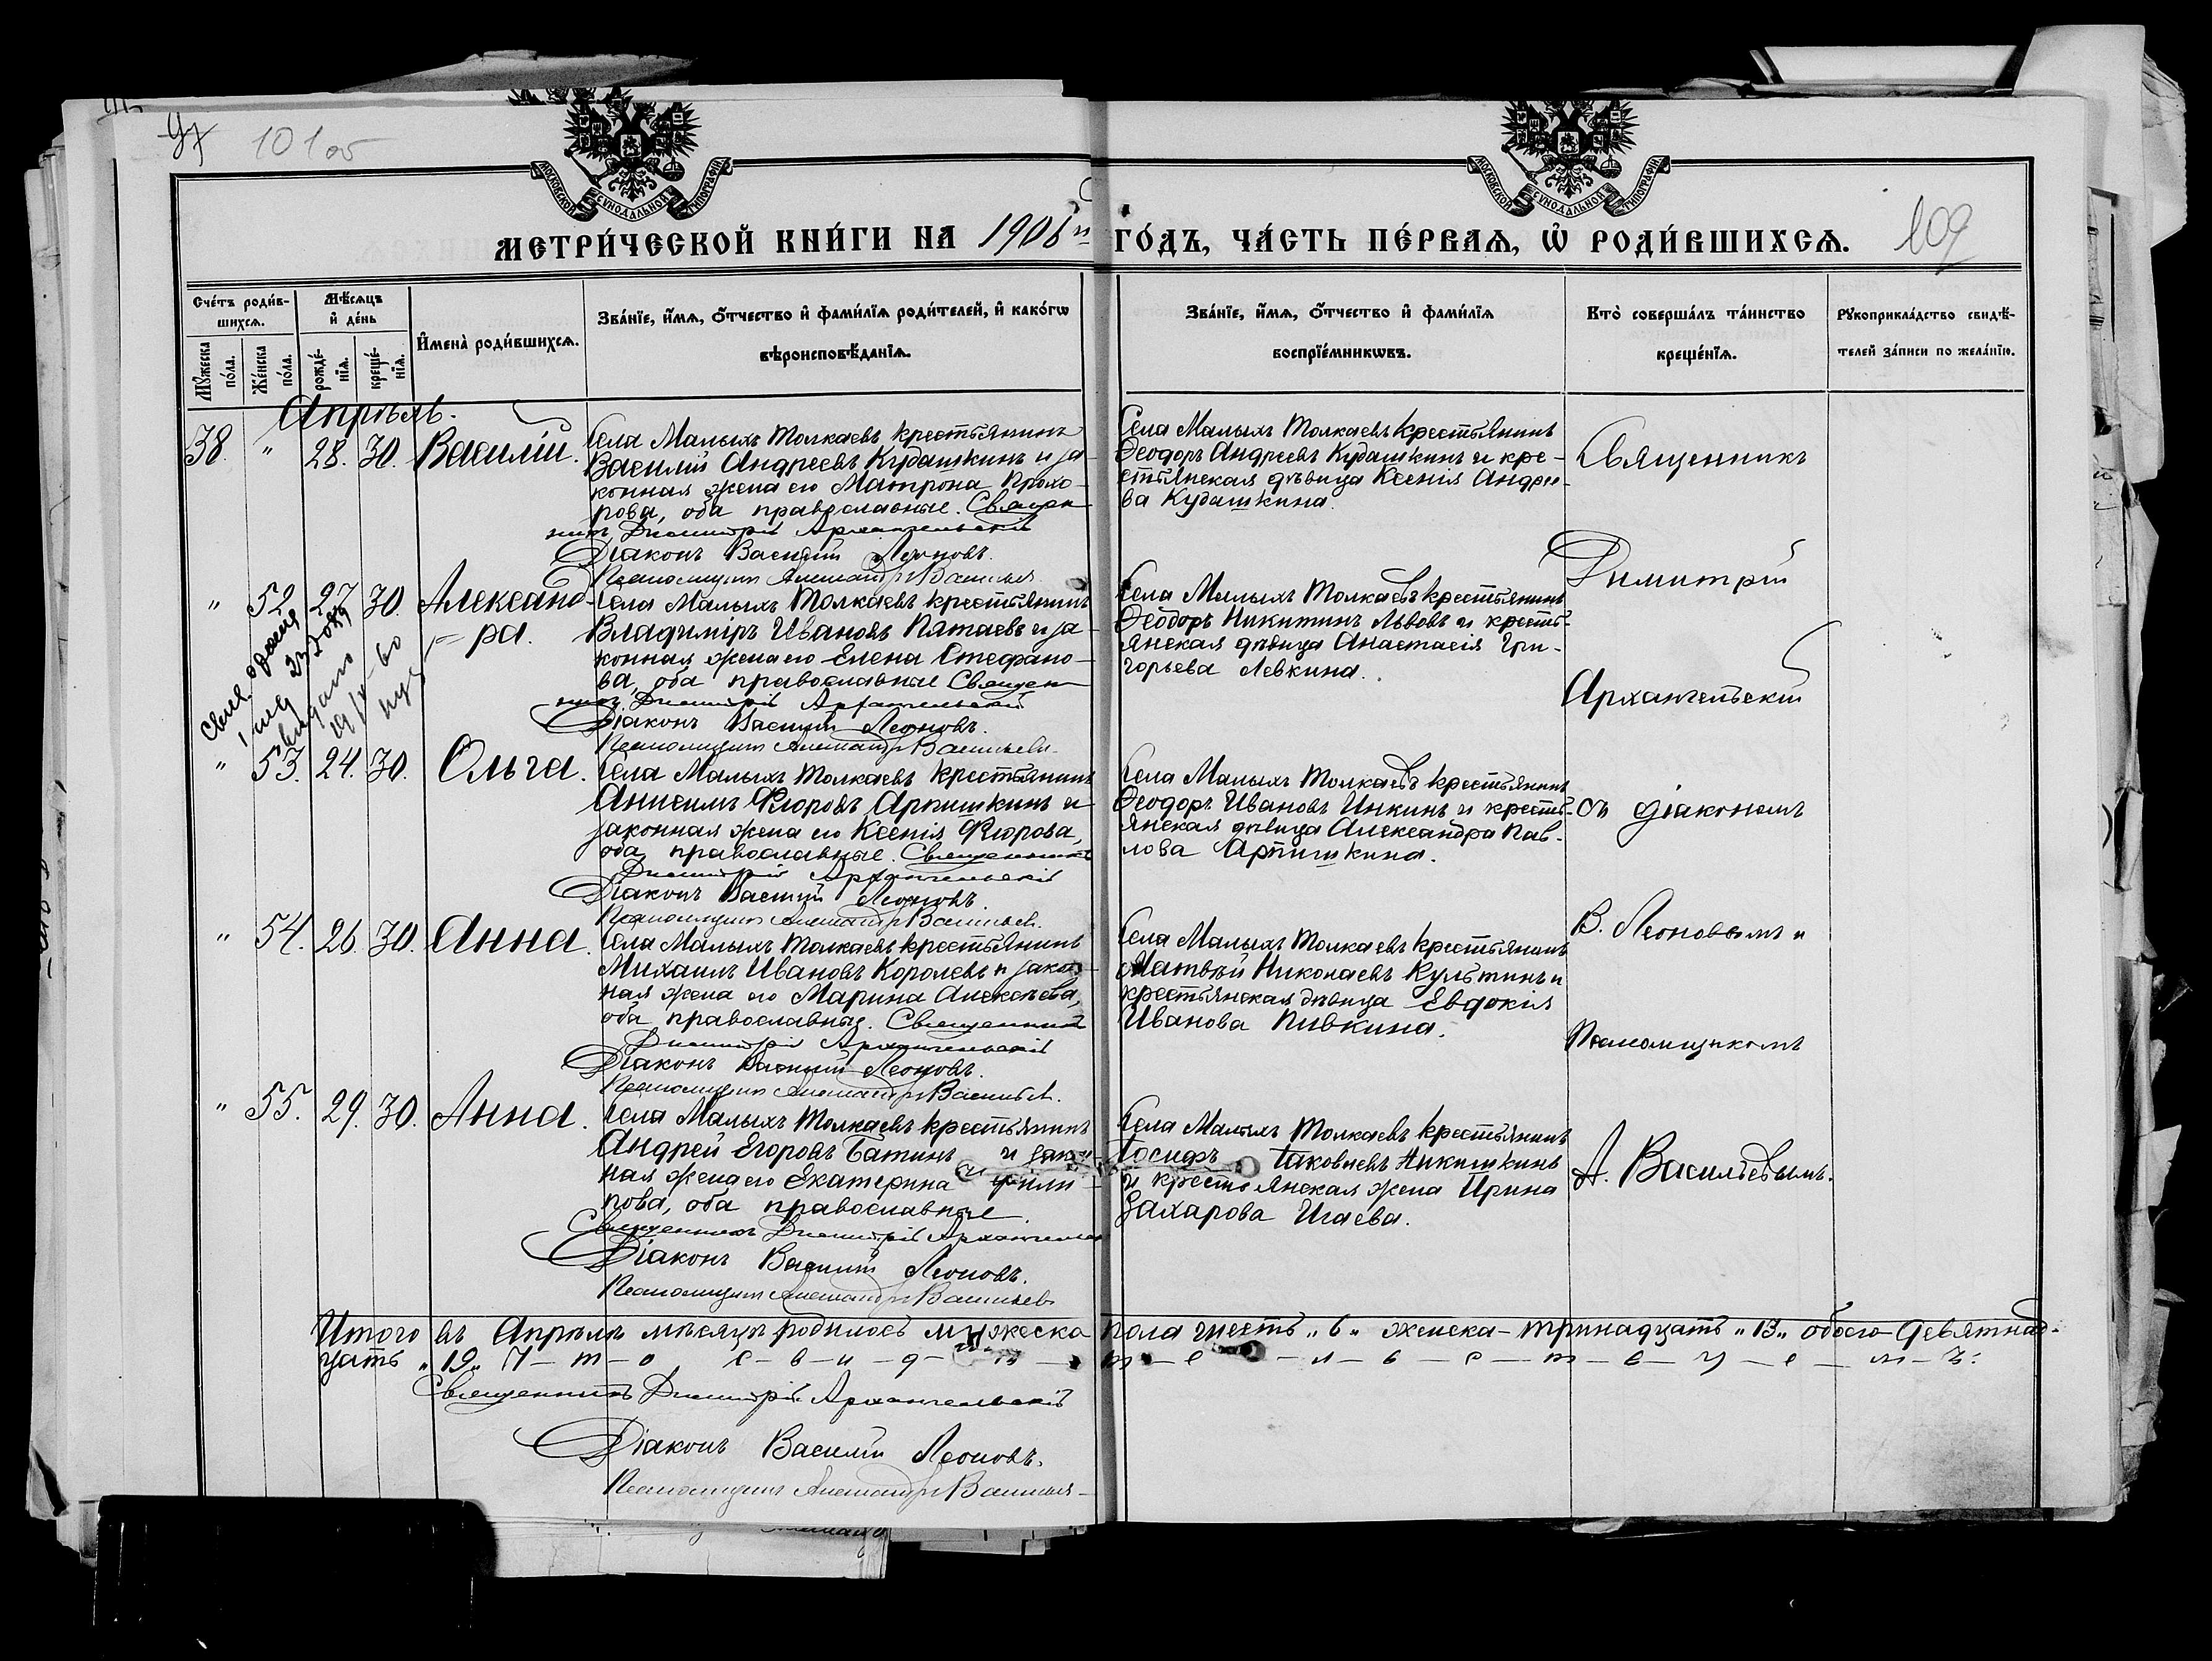 97
101об
МОСКОВСКОЙ СѴНОДАЛЬНОЙ ТИПОГРАФІИ
МОСКОВСКОЙ СѴНОДАЛЬНОЙ ТИПОГРАФІИ
МЕТРИ́ЧЕСКОЙ КНИ́ГИ НА 1906й ГО́ДЪ, ЧА́СТЬ ПЕ́РВАѦ, Ѡ҆ РОДИ́ВШИХСѦ.
109
Сче́тъ роди́в-
шихсѧ.
Мꙋ́жеска по́ла.
Же́нска по́ла.
Мѣ́сѧцъ
и҆ де́нь
рожде́-
нїѧ.
креще́-
нїѧ.
И҆мена̀ роди́вшихсѧ.
Зва́нїе, и҆́мѧ, ѻ҆́тчество и҆ фами́лїѧ роди́телей, и҆ како́гѡ
вѣроисповѣ́данїѧ.
Зва́нїе, и҆́мѧ, ѻ҆́тчество и҆ фами́лїѧ
воспрїе́мникѡвъ.
Кто̀ соверша́лъ та́инство
креще́нїѧ.
Рꙋкоприкла́дство свидѣ́-
телей за́писи по жела́нїю.
Апрѣль.
38. " 28. 30. Василій.
Села Малыхъ Толкаевъ крестьянинъ
Василій Андреевъ Кудашкинъ и за-
конная жена его Матрона Прохо-
рова, оба православные. Священ-
никъ Димитрій Архангельскій
Діаконъ Василій Леоновъ.
Псаломщикъ Александръ Васильев
Села Малыхъ Толкаевъ крестьянинъ
Ѳеодоръ Андреевъ Кудашкинъ и кре-
стьянская дѣвица Ксенія Андре-
ва Кудашкина.
Священникъ
Димитрій
Архангельскій
съ діакономъ
В. Леоновымъ и
Псаломщикомъ
А. Васильевымъ.
" 52. 27. 30. Александ-
ра.
Села Малыхъ Толкаевъ крестьянинъ
Владиміръ Ивановъ Пятаевъ и за-
конная жена его Елена Стефано-
ва, оба православные Священ-
никъ Димитрій Архангельскій
Діаконъ Василій Леоновъ.
Псаломщикъ Александръ Васильевъ
Села Малыхъ Толкаевъ крестьянинъ
Ѳеодоръ Никитинъ Львовъ и кресть-
янская дѣвица Анастасія Гри-
горьева Левкина.
" 53. 24. 30. Ольга.
Села Малыхъ Толкаевъ крестьянинъ
Анисимъ Флоровъ Арпишкинъ и
законная жена его Ксенія Флорова,
оба православные. Священникъ
Димитрій Архангельскій
Діаконъ Василій Леоновъ.
Псаломщикъ Александръ Васильев.
Села Малыхъ Толкаевъ крестьянинъ
Ѳеодоръ Ивановъ Инкинъ и кресть-
янская дѣвица Александра Пав-
лова Арпишкина.
" 54. 26. 30. Анна.
Села Малыхъ Толкаевъ крестьянинъ
Михаилъ Ивановъ Королевъ и закон-
ная жена его Марина Алексѣева,
оба православные. Священникъ
Димитрій Архангельскій
Діаконъ Василій Леоновъ.
Псаломщикъ Александръ Васильев.
Села Малыхъ Толкаевъ крестьянинъ
Матвѣй Николаевъ Культинъ и
крестьянская дѣвица Евдокія
Иванова Пивкина.
" 55. 29. 30. Анна.
Села Малыхъ Толкаевъ крестьянинъ
Андрей Егоровъ Батинъ и закон-
ная жена его Екатерина Фили-
пова, оба православные.
Священникъ Димитрій Архангельск
Діаконъ Василій Леоновъ.
Псаломщикъ Александръ Васильевъ
Села Малыхъ Толкаевъ крестьянинъ
Іосифъ Іаковлевъ Аникишкинъ
и крестьянская жена Ирина
Захарова Игаева.
Итого въ Апрѣлѣ мѣсяцѣ родилось мужеска пола шесть „6„ женска - тринадцать „13„ обоего девятнад-
цать „19„ Ч-т-о с-в-и-д-ѣ-т-е-л-ь-с-т-в-у-е-м-ъ:
Священникъ Димитрій Архангельскій
Діаконъ Василій Леоновъ.
Псаломщикъ Александръ Васильев-